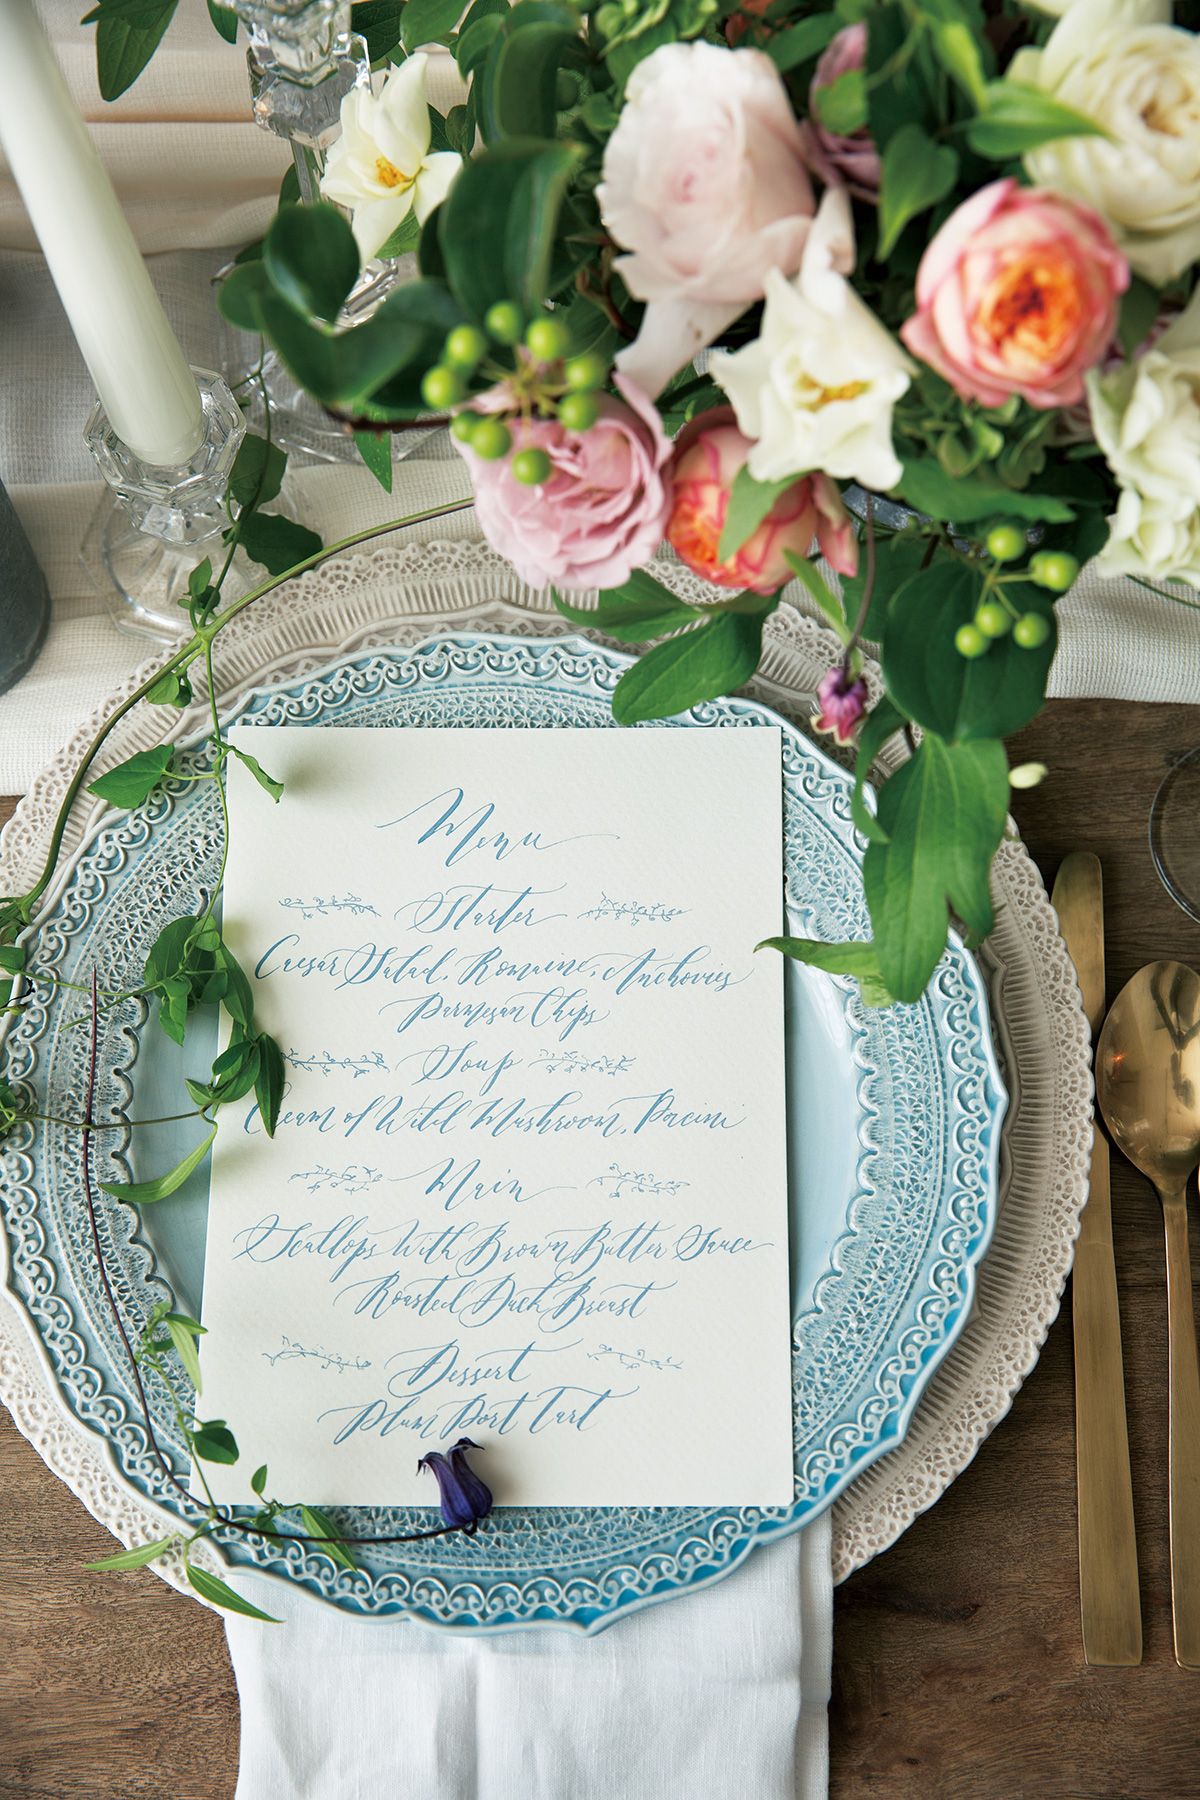 Menu
Starter
Caesar Salad, Romaine, Anchovies
Parmesan Chips
Soup
Cream of Wild Mushroom, Pacini
Main
Scallops With Brown Butter Sauce
Roasted Duck Breast
Dessert
Plum Port Tart